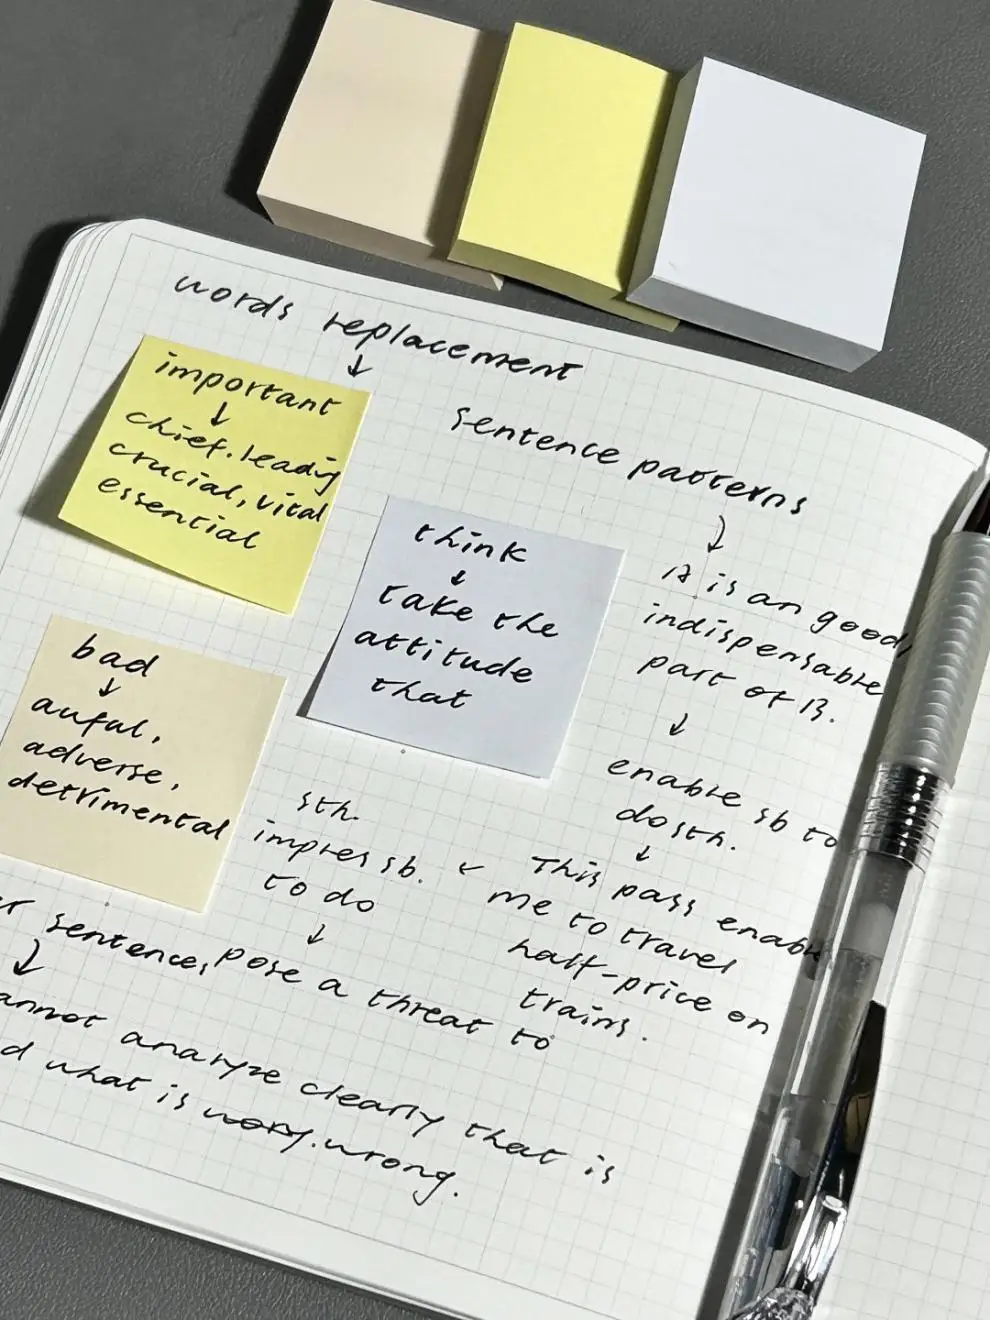 words replacement
↓
important
↓
chief. leading
crucial, vital
essential
think
↓
take the
attitude
that
bad
↓
auful,
adverse,
detrimental
sentence patterns
↓
A is an good,
indispensable
part of B.
↓
enable sb to
do sth.
↓
This pass enable
me to travel
half-price on
trains.
←
sth.
impres sb.
to do
↓
pose a threat to
sentence,
↓
annot analyze clearly that is
d what is wory. wrong.